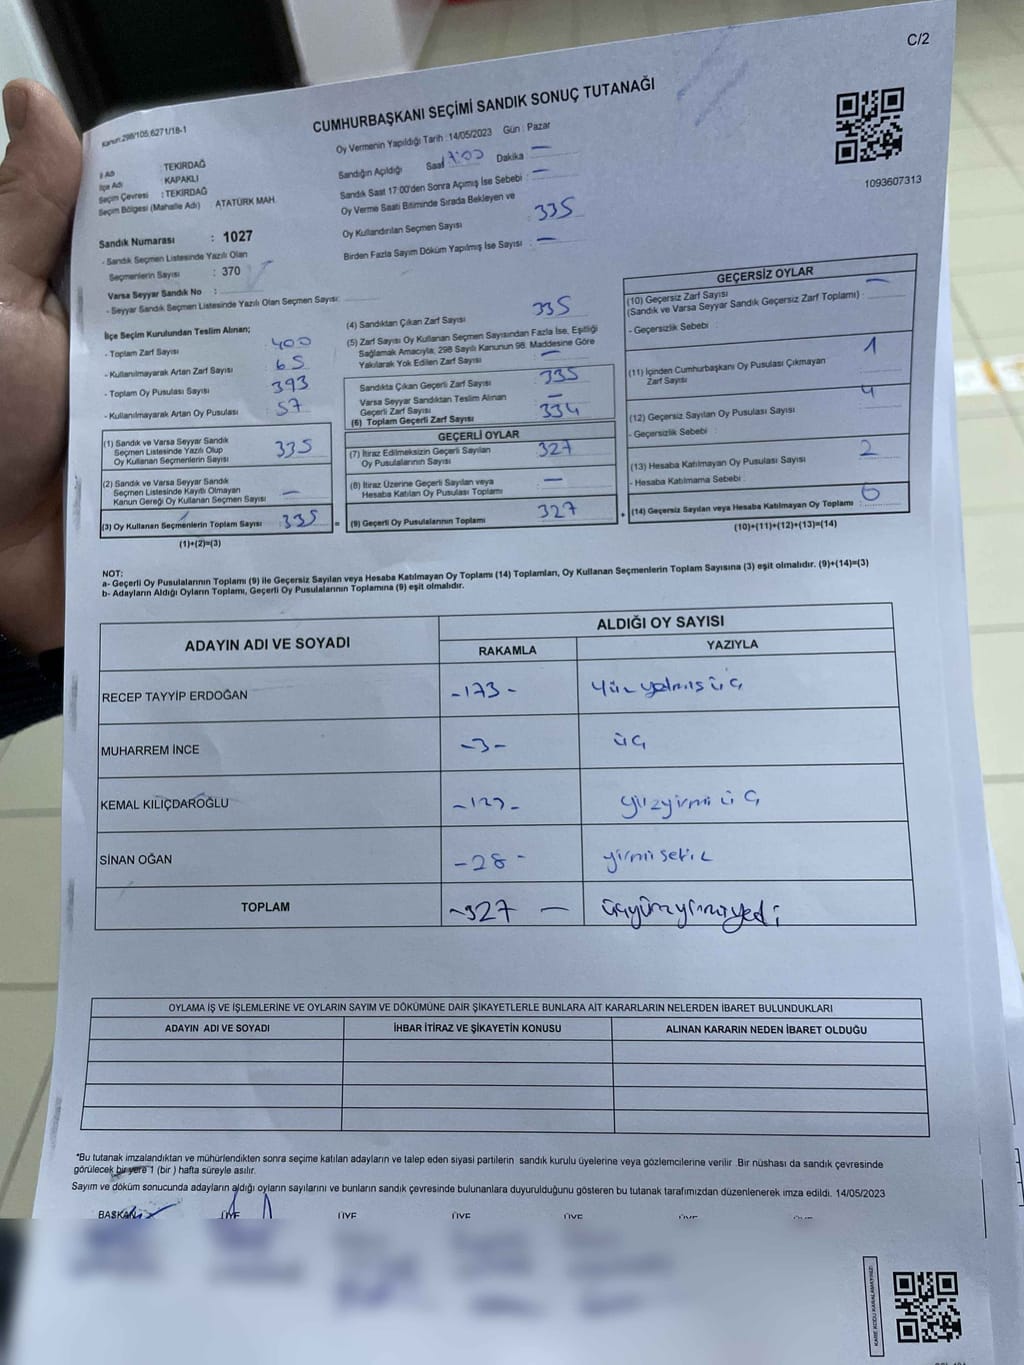 C/2
Kanun:298/105;6271/18-1
CUMHURBAŞKANI SEÇİMİ SANDIK SONUÇ TUTANAĞI
1093607313
İl Adı : TEKİRDAĞ
İlçe Adı : KAPAKLI
Seçim Çevresi : TEKİRDAĞ
Seçim Bölgesi (Mahalle Adı) : ATATÜRK MAH.
Sandık Numarası : 1027
- Sandık Seçmen Listesinde Yazılı Olan
Seçmenlerin Sayısı : 370
Varsa Seyyar Sandık No :
- Seyyar Sandık Seçmen Listesinde Yazılı Olan Seçmen Sayısı:
Oy Vermenin Yapıldığı Tarih : 14/05/2023 Gün : Pazar
Sandığın Açıldığı Saat Dakika —
Sandık Saat 17:00'den Sonra Açımış İse Sebebi : —
Oy Verme Saati Bitiminde Sırada Bekleyen ve
Oy Kullandırılan Seçmen Sayısı 335
Birden Fazla Sayım Döküm Yapılmış İse Sayısı : —
İlçe Seçim Kurulundan Teslim Alınan;
- Toplam Zarf Sayısı 400
- Kullanılmayarak Artan Zarf Sayısı 65
- Toplam Oy Pusulası Sayısı 393
- Kullanılmayarak Artan Oy Pusulası 57
(1) Sandık ve Varsa Seyyar Sandık
Seçmen Listesinde Yazılı Olup
Oy Kullanan Seçmenlerin Sayısı 335
(2) Sandık ve Varsa Seyyar Sandık
Seçmen Listesinde Kayıtlı Olmayan
Kanun Gereği Oy Kullanan Seçmen Sayısı —
(3) Oy Kullanan Seçmenlerin Toplam Sayısı : 335 =
(1)+(2)=(3)
(4) Sandıktan Çıkan Zarf Sayısı 335
(5) Zarf Sayısı Oy Kullanan Seçmen Sayısından Fazla İse, Eşitliği
Sağlamak Amacıyla; 298 Sayılı Kanunun 98. Maddesine Göre
Yakılarak Yok Edilen Zarf Sayısı —
Sandıkta Çıkan Geçerli Zarf Sayısı 335
Varsa Seyyar Sandıktan Teslim Alınan
Geçerli Zarf Sayısı —
(6) Toplam Geçerli Zarf Sayısı 334
GEÇERLİ OYLAR
(7) İtiraz Edilmeksizin Geçerli Sayılan
Oy Pusulalarının Sayısı 327
(8) İtiraz Üzerine Geçerli Sayılan veya
Hesaba Katılan Oy Pusulası Toplamı —
(9) Geçerli Oy Pusulalarının Toplamı 327 +
GEÇERSİZ OYLAR
(10) Geçersiz Zarf Sayısı
(Sandık ve Varsa Seyyar Sandık Geçersiz Zarf Toplamı) : —
- Geçersizlik Sebebi :
(11) İçinden Cumhurbaşkanı Oy Pusulası Çıkmayan
Zarf Sayısı 1
(12) Geçersiz Sayılan Oy Pusulası Sayısı 4
- Geçersizlik Sebebi :
(13) Hesaba Katılmayan Oy Pusulası Sayısı 2
- Hesaba Katılmama Sebebi :
(14) Geçersiz Sayılan veya Hesaba Katılmayan Oy Toplamı :
(10)+(11)+(12)+(13)=(14)
NOT:
a- Geçerli Oy Pusulalarının Toplamı (9) ile Geçersiz Sayılan veya Hesaba Katılmayan Oy Toplamı (14) Toplamları, Oy Kullanan Seçmenlerin Toplam Sayısına (3) eşit olmalıdır. (9)+(14)=(3)
b- Adayların Aldığı Oyların Toplamı, Geçerli Oy Pusulalarının Toplamına (9) eşit olmalıdır.
ADAYIN ADI VE SOYADI ALDIĞI OY SAYISI
RAKAMLA YAZIYLA
RECEP TAYYİP ERDOĞAN -173- yüz yetmiş üç
MUHARREM İNCE -3- üç
KEMAL KILIÇDAROĞLU -123- yüzyirmi üç
SİNAN OĞAN -28- yirmi sekiz
TOPLAM -327 — üçyüzyirmiyedi
OYLAMA İŞ VE İŞLEMLERİNE VE OYLARIN SAYIM VE DÖKÜMÜNE DAİR ŞİKAYETLERLE BUNLARA AİT KARARLARIN NELERDEN İBARET BULUNDUKLARI
ADAYIN ADI VE SOYADI İHBAR İTİRAZ VE ŞİKAYETİN KONUSU ALINAN KARARIN NEDEN İBARET OLDUĞU
*Bu tutanak imzalandıktan ve mühürlendikten sonra seçime katılan adayların ve talep eden siyasi partilerin sandık kurulu üyelerine veya gözlemcilerine verilir .Bir nüshası da sandık çevresinde
görülecek bir yere 1 (bir ) hafta süreyle asılır.
Sayım ve döküm sonucunda adayların aldığı oyların sayılarını ve bunların sandık çevresinde bulunanlara duyurulduğunu gösteren bu tutanak tarafımızdan düzenlenerek imza edildi. 14/05/2023
BAŞKAN ÜYE ÜYE ÜYE ÜYE ÜYE ÜYE